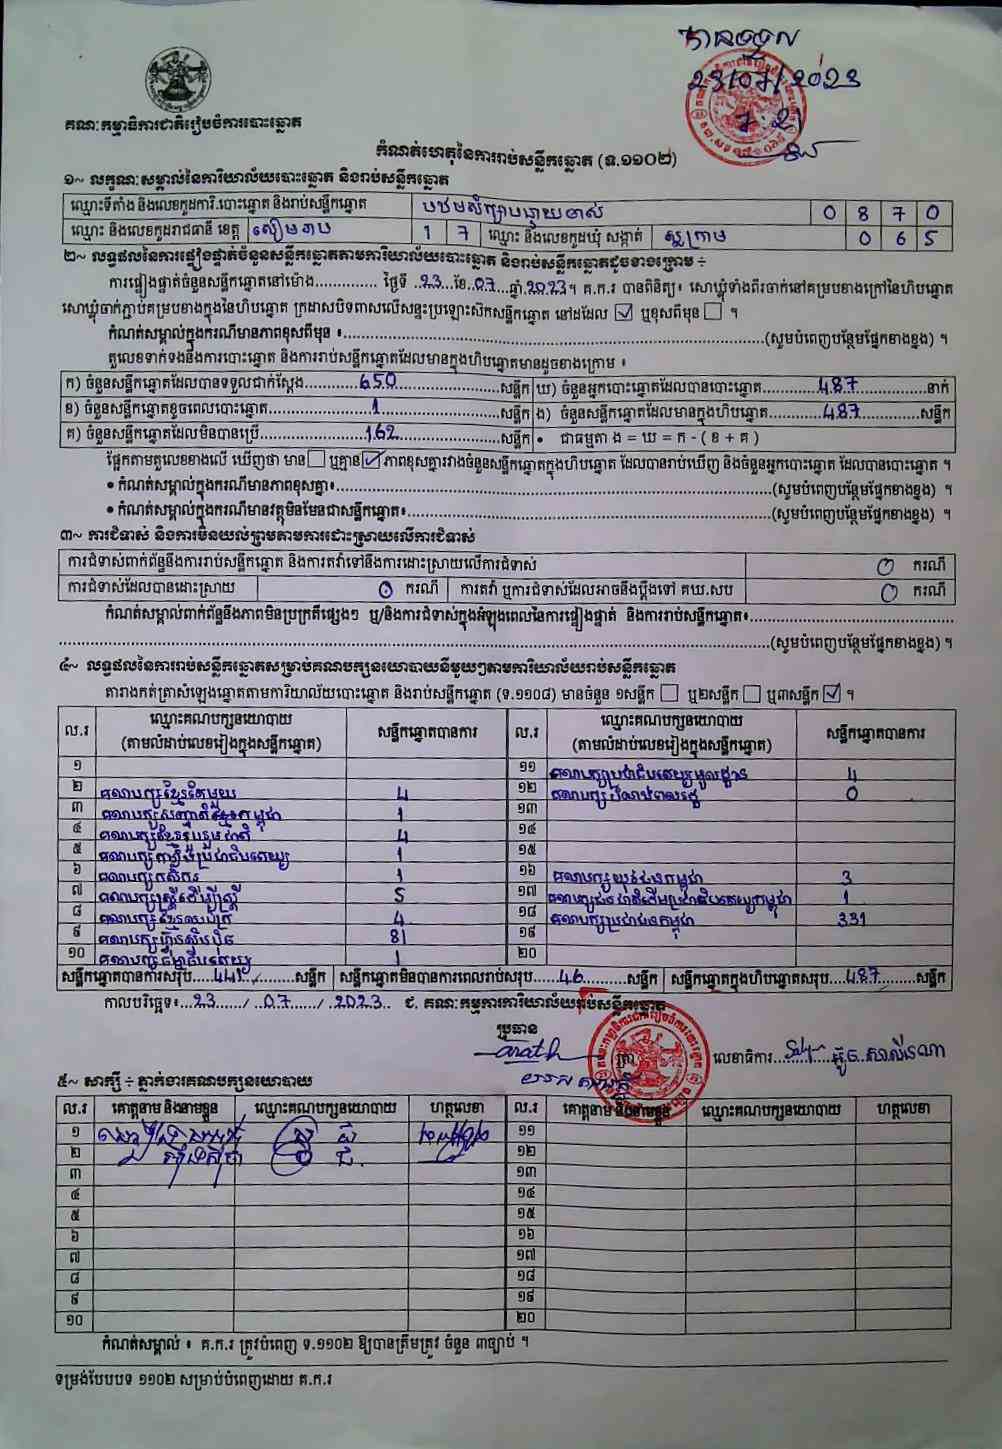 បានទទួល
23/07/2023
7:21
គណៈកម្មាធិការជាតិរៀបចំការបោះឆ្នោត
កំណត់ហេតុនៃការរាប់សន្លឹកឆ្នោត (ទ.១១០២)
១~ លក្ខណៈសម្គាល់នៃការិយាល័យបោះឆ្នោត និងរាប់សន្លឹកឆ្នោត
ឈ្មោះទីតាំង និងលេខកូដការិ.បោះឆ្នោត និងរាប់សន្លឹកឆ្នោត 0 8 7 0
ឈ្មោះ និងលេខកូដរាជធានី ខេត្ត សៀមរាប 1 7 ឈ្មោះ និងលេខកូដឃុំ សង្កាត់ ស្លក្រាម 0 6 5
២~ លទ្ធផលនៃការផ្ទៀងផ្ទាត់ចំនួនសន្លឹកឆ្នោតតាមការិយាល័យបោះឆ្នោត និងរាប់សន្លឹកឆ្នោតដូចខាងក្រោម ÷
ការផ្ទៀងផ្ទាត់ចំនួនសន្លឹកឆ្នោតនៅម៉ោង............. ថ្ងៃទី ..23...ខែ.07....ឆ្នាំ.2023។ គ.ក.រ បានពិនិត្យ៖ សោឃ្លុំទាំងពីរចាក់នៅគម្របខាងក្រៅនៃហិបឆ្នោត
សោឃ្លុំចាក់ភ្ជាប់គម្របខាងក្នុងនៃហិបឆ្នោត ក្រដាសបិទពាសលើសន្ទះប្រឡោះស៊កសន្លឹកឆ្នោត នៅដដែល ☑ ឬខុសពីមុន ☐ ។
កំណត់សម្គាល់ក្នុងករណីមានភាពខុសពីមុន ៖......(សូមបំពេញបន្ថែមផ្នែកខាងខ្នង) ។
តួលេខទាក់ទងនឹងការបោះឆ្នោត និងការរាប់សន្លឹកឆ្នោតដែលមានក្នុងហិបឆ្នោតមានដូចខាងក្រោម ៖
ក) ចំនួនសន្លឹកឆ្នោតដែលបានទទួលជាក់ស្តែង.........650.........សន្លឹក ឃ) ចំនួនអ្នកបោះឆ្នោតដែលបានបោះឆ្នោត.........487.........នាក់
ខ) ចំនួនសន្លឹកឆ្នោតខូចពេលបោះឆ្នោត.........1.........សន្លឹក ង) ចំនួនសន្លឹកឆ្នោតដែលមានក្នុងហិបឆ្នោត.........487.........សន្លឹក
គ) ចំនួនសន្លឹកឆ្នោតដែលមិនបានប្រើ.........162.........សន្លឹក • ជាធម្មតា ង = ឃ = ក - ( ខ + គ )
ផ្អែកតាមតួលេខខាងលើ ឃើញថា មាន☐ ឬគ្មាន☑ ភាពខុសគ្នារវាងចំនួនសន្លឹកឆ្នោតក្នុងហិបឆ្នោត ដែលបានរាប់ឃើញ និងចំនួនអ្នកបោះឆ្នោត ដែលបានបោះឆ្នោត ។
• កំណត់សម្គាល់ក្នុងករណីមានភាពខុសគ្នា៖......(សូមបំពេញបន្ថែមផ្នែកខាងខ្នង) ។
• កំណត់សម្គាល់ក្នុងករណីមានវត្ថុមិនមែនជាសន្លឹកឆ្នោត៖......(សូមបំពេញបន្ថែមផ្នែកខាងខ្នង) ។
៣~ ការជំទាស់ និងការមិនយល់ព្រមតាមការដោះស្រាយលើការជំទាស់
ការជំទាស់ពាក់ព័ន្ធនឹងការរាប់សន្លឹកឆ្នោត និងការតវ៉ាទៅនឹងការដោះស្រាយលើការជំទាស់ 0 ករណី
ការជំទាស់ដែលបានដោះស្រាយ 0 ករណី ការតវ៉ា ឬការជំទាស់ដែលអាចនឹងប្តឹងទៅ គឃ.សប 0 ករណី
កំណត់សម្គាល់ពាក់ព័ន្ធនឹងភាពមិនប្រក្រតីផ្សេងៗ ឬ/និងការជំទាស់ក្នុងអំឡុងពេលនៃការផ្ទៀងផ្ទាត់ និងការរាប់សន្លឹកឆ្នោត៖......
......(សូមបំពេញបន្ថែមផ្នែកខាងខ្នង) ។
៤~ លទ្ធផលនៃការរាប់សន្លឹកឆ្នោតសម្រាប់គណបក្សនយោបាយនីមួយៗតាមការិយាល័យរាប់សន្លឹកឆ្នោត
តារាងកត់ត្រាសំឡេងឆ្នោតតាមការិយាល័យបោះឆ្នោត និងរាប់សន្លឹកឆ្នោត (ទ.១១០៨) មានចំនួន ១សន្លឹក ☐ ឬ២សន្លឹក ☐ ឬ៣សន្លឹក ☑ ។
ល.រ ឈ្មោះគណបក្សនយោបាយ (តាមលំដាប់លេខរៀងក្នុងសន្លឹកឆ្នោត) សន្លឹកឆ្នោតបានការ ល.រ ឈ្មោះគណបក្សនយោបាយ (តាមលំដាប់លេខរៀងក្នុងសន្លឹកឆ្នោត) សន្លឹកឆ្នោតបានការ
១ ១១ គណបក្សប្រជាធិបតេយ្យមូលដ្ឋាន 4
២ គណបក្សខ្មែរតែមួយ 4 ១២ 0
៣ គណបក្សសញ្ជាតិខ្មែរកម្ពុជា 1 ១៣
៤ គណបក្សខ្មែររួបរួមជាតិ 4 ១៤
៥ គណបក្សកម្លាំងប្រជាធិបតេយ្យ 1 ១៥
៦ គណបក្សកសិករ 1 ១៦ គណបក្សយុវជនកម្ពុជា 3
៧ គណបក្សស្ត្រីដើម្បីស្ត្រី 5 ១៧ គណបក្សជនជាតិដើមប្រជាធិបតេយ្យកម្ពុជា 1
៨ គណបក្សខ្មែរឈប់ក្រ 4 ១៨ គណបក្សប្រជាជនកម្ពុជា 331
៩ គណបក្សហ្វ៊ុនស៊ិនប៉ិច 81 ១៩
១០ គណបក្សធម្មាធិបតេយ្យ 1 ២០
សន្លឹកឆ្នោតបានការសរុប....441....សន្លឹក សន្លឹកឆ្នោតមិនបានការពេលរាប់សរុប....46....សន្លឹក សន្លឹកឆ្នោតក្នុងហិបឆ្នោតសរុប...487....សន្លឹក
កាលបរិច្ឆេទ៖...23..../..07..../..2023.. ជ. គណៈកម្មការការិយាល័យរាប់សន្លឹកឆ្នោត
ប្រធាន
លេខាធិការ
៥~ សាក្សី ÷ ភ្នាក់ងារគណបក្សនយោបាយ
ល.រ គោត្តនាម និងនាមខ្លួន ឈ្មោះគណបក្សនយោបាយ ហត្ថលេខា ល.រ គោត្តនាម និងនាមខ្លួន ឈ្មោះគណបក្សនយោបាយ ហត្ថលេខា
១ ១១
២ ១២
៣ ១៣
៤ ១៤
៥ ១៥
៦ ១៦
៧ ១៧
៨ ១៨
៩ ១៩
១០ ២០
កំណត់សម្គាល់ ៖ គ.ក.រ ត្រូវបំពេញ ទ.១១០២ ឱ្យបានត្រឹមត្រូវ ចំនួន ៣ច្បាប់ ។
ទម្រង់បែបបទ ១១០២ សម្រាប់បំពេញដោយ គ.ក.រ